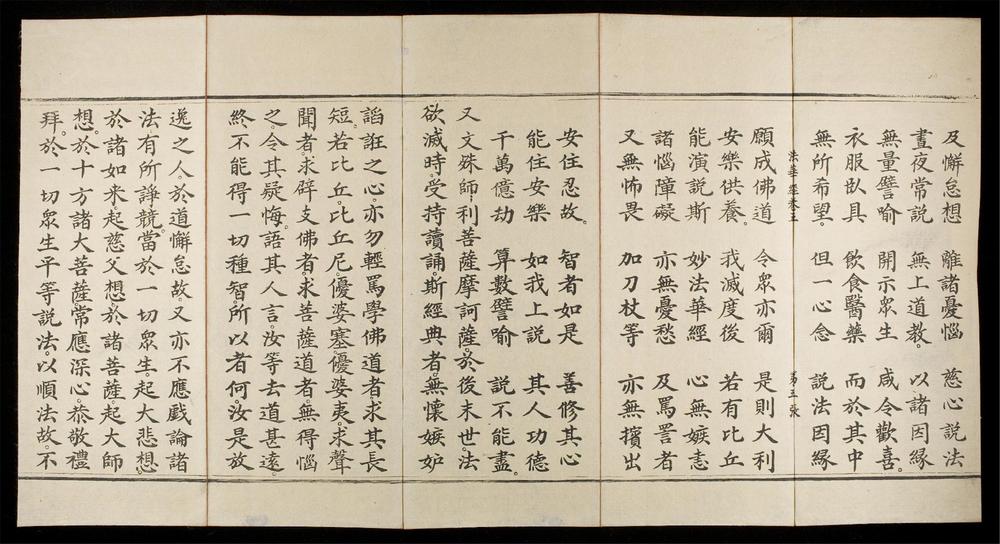 及懈怠想　離諸憂惱　慈心說法
晝夜常說　無上道教。以諸因緣
無量譬喻　開示眾生　咸令歡喜。
衣服臥具　飲食醫藥　而於其中
無所希望。但一心念　說法因緣
法華經卷五　第五張
願成佛道　令眾亦爾　是則大利
安樂供養。我滅度後　若有比丘
能演說斯　妙法華經　心無嫉恚
諸惱障礙　亦無憂愁　及罵詈者
又無怖畏　加刀杖等　亦無擯出
安住忍故。智者如是　善修其心
能住安樂　如我上說　其人功德
千萬億劫　算數譬喻　說不能盡。
又文殊師利菩薩摩訶薩。於後末世法
欲滅時。受持讀誦。斯經典者。無懷嫉妬
諂誑之心。亦勿輕罵學佛道者求其長
短。若比丘。比丘尼。優婆塞。優婆夷。求聲
聞者。求辟支佛者。求菩薩道者。無得惱
之。令其疑悔。語其人言。汝等去道甚遠。
終不能得一切種智。所以者何。汝是放
逸之人。於道懈怠故。又亦不應戲論諸
法有所諍競。當於一切眾生。起大悲想。
於諸如來。起慈父想。於諸菩薩。起大師
想。於十方諸大菩薩。常應深心恭敬禮
拜。於一切眾生平等說法。以順法故。不